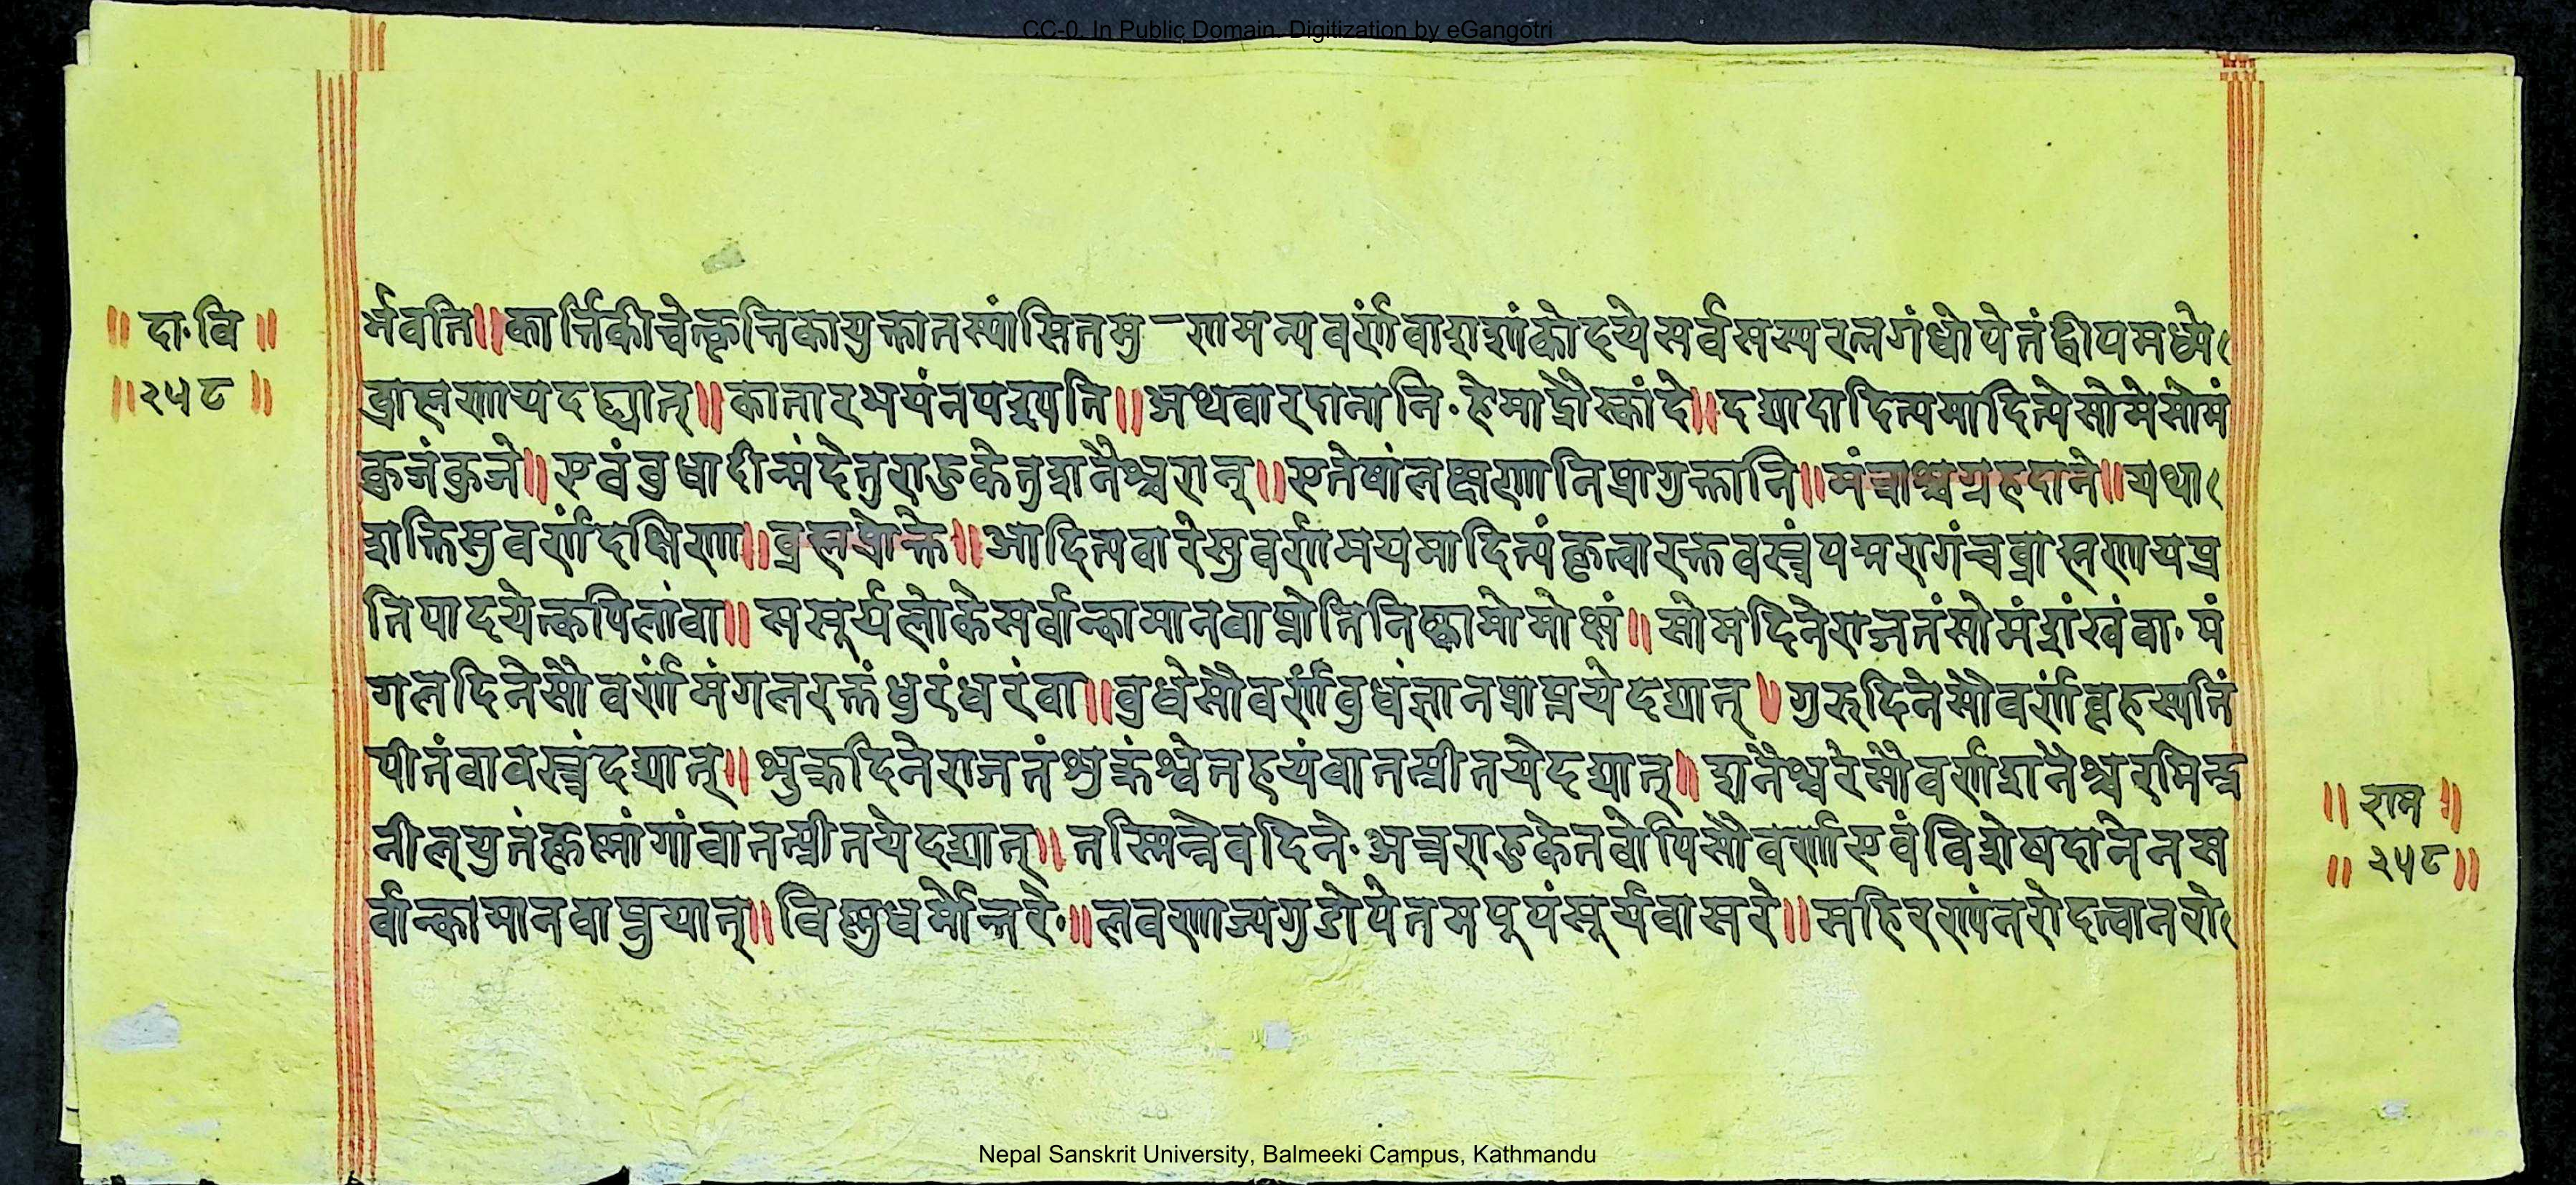 CC-0. In Public Domain. Digitization by eGangotri
॥ दा॰ वि ॥
॥ २५८ ॥
र्भवति॥कार्त्तिकीचेत्कृत्तिकायुक्तातस्यांसितमु-रणमन्यवर्णंवाशशांकोदयेसर्वसस्यरत्नगंधोपेतंद्वीपमध्ये
ब्राह्मणायदद्यात्॥कांतारभयंनपश्यति॥अथवारदानानि॰हेमाद्रौस्कांदे॥दद्यादादित्यमादित्येसोमेसोमं
कुजंकुजे॥एवंबुधादीन्मंदेतुराहुकेतुशनैश्चरान्॥एतेषांलक्षणानिप्रागुक्तानि॥मंत्राश्चग्रहदाने॥यथा
शक्तिसुवर्णंदक्षिणा॥ब्रह्मप्रोक्ते॥आदित्यवारेसुवर्णमयमादित्यंकृत्वारक्तवस्त्रंपद्मरागंचब्राह्मणायप्र
तिपादयेत्कपिलांवा॥ससूर्यलोकेसर्वान्कामानवाप्नोतिनिष्कामोमोक्षं॥सोमदिनेराजतंसोमंशंखंवा॰मं
गलदिनेसौवर्णंमंगलरक्तंधुरंधरंवा॥बुधेसौवर्णंबुधंज्ञानप्राप्तयेदद्यात्॥गुरुदिनेसौवर्णंबृहस्पतिं
पीतंवावस्त्रंदद्यात्॥शुक्रदिनेराजतंशुक्रंश्वेतहयंवातत्प्रीतयेदद्यात्॥शनैश्चरेसौवर्णंशनैश्चरमिन्द्र
नीलयुतंकृष्णांगांवातत्प्रीतयेदद्यात्॥तस्मिन्नेवदिने॰अत्रराहुकेतवोपिसौवर्णाएवंविशेषदानेनस
र्वान्कामानवाप्नुयात्॥विष्णुधर्मोत्तरे॰॥लवणाज्यगुडोपेतमपूपंसूर्यवासरे॥सहिरण्यंनरोदत्वानरो
॥ राम ॥
॥ २५८॥
Nepal Sanskrit University, Balmeeki Campus, Kathmandu